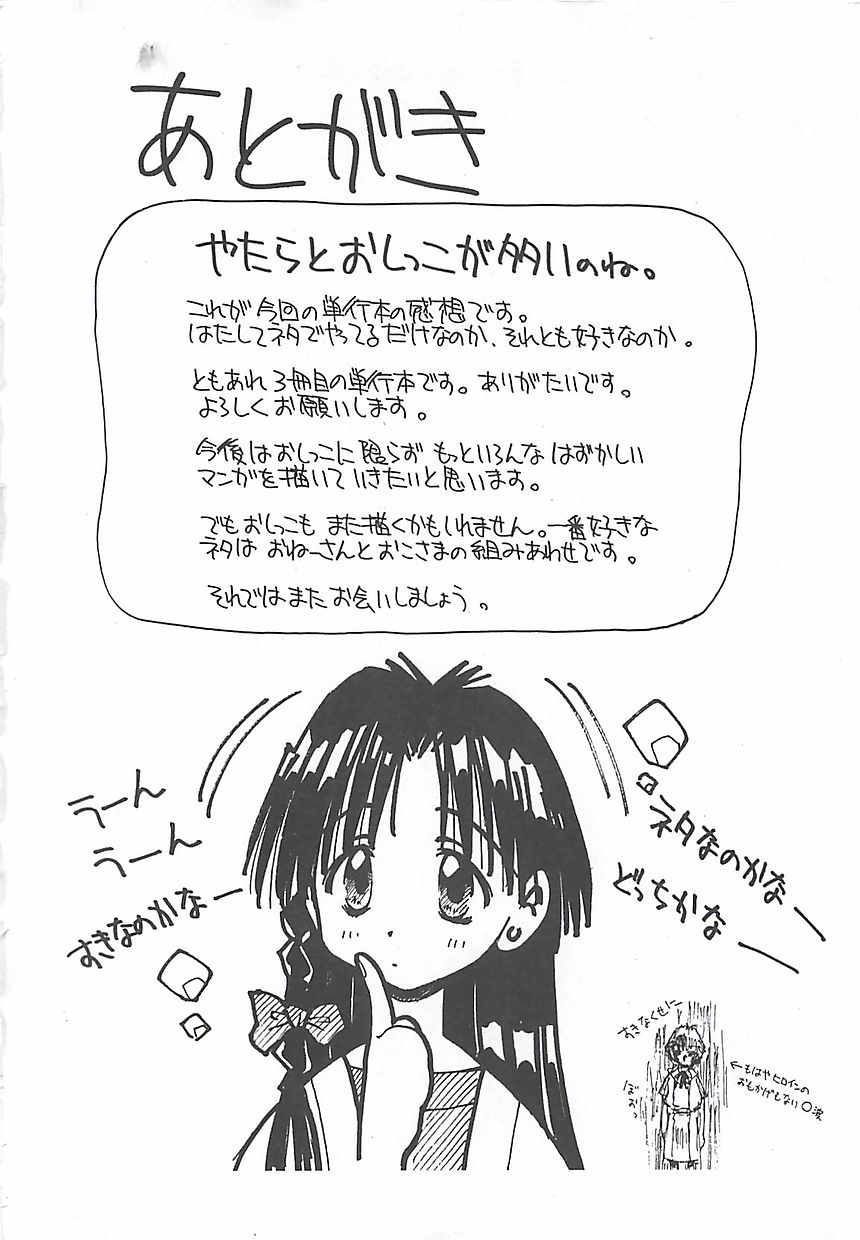 あとがき
やたらとおしっこが多いのね。
これが今回の単行本の感想です。
はたしてネタでやってるだけなのか、それとも好きなのか。
ともあれ3冊目の単行本です。ありがたいです。
よろしくお願いします。
今後はおしっこに限らずもっといろんなはずかしい
マンガを描いていきたいと思います。
でもおしっこもまた描くかもしれません。一番好きな
ネタはおねーさんとおこさまの組みあわせです。
それではまたお会いしましょう。
うーん
うーん
すきなのかなー
ネタなのかなー
どっちかなー
すきなくせに
ぼおっ
←もはやヒロインの
おもかげもない○波